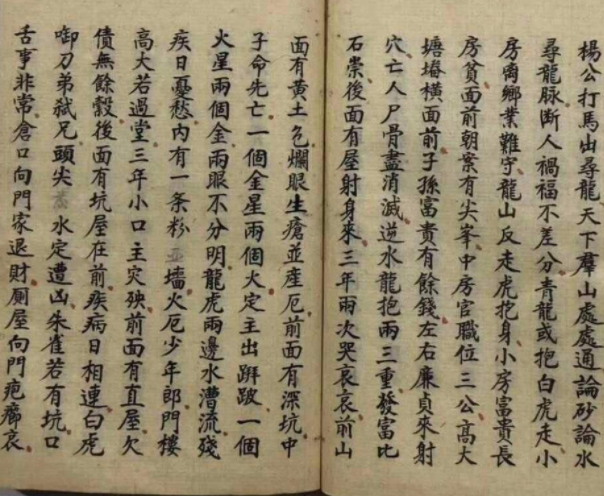 楊公打馬出尋龍天下羣山處處通論砂論水
尋龍脉断人禍福不差分青龍或抱白虎走小
房离鄉業難守龍山反走虎抱身小房富貴長
房貧面前朝案有尖峯中房官職位三公高大
塘塝橫面前子孫富貴有餘錢左右廉貞來射
穴亡人尸骨盡消滅逆水龍抱兩三重發富比
石崇後面有屋射身來三年兩次哭哀哀前山
面有黃土色爛眼生瘡並產厄前面有深坑中
子命先亡一個金星兩個火定主出跰跛一個
火星兩個金兩眼不分明龍虎兩邊水漕流殘
疾日憂愁内有一条粉並墻火厄少年郎門樓
高大若過堂三年小口主灾殃前面有直屋欠
債無餘穀後面有坑屋在前疾病日相連白虎
啣刀弟弒兄頭尖水定遭凶朱雀若有坑口
舌事非常倉口向門家退財厕屋向門疤癤哀